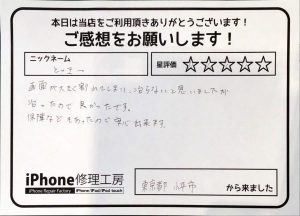 本日は当店をご利用頂きありがとうございます！
ご感想をお願いします！
ニックネーム
星評価 ☆☆☆☆☆
画面が大きく割れてしまい、治らないと思いましたが
治ったので良かったです。
保障などもあったので安心出来ます。
iPhone修理工房
iPhone Repair Factory iPhone/iPad/iPod touch
東京都 小平市 から来ました